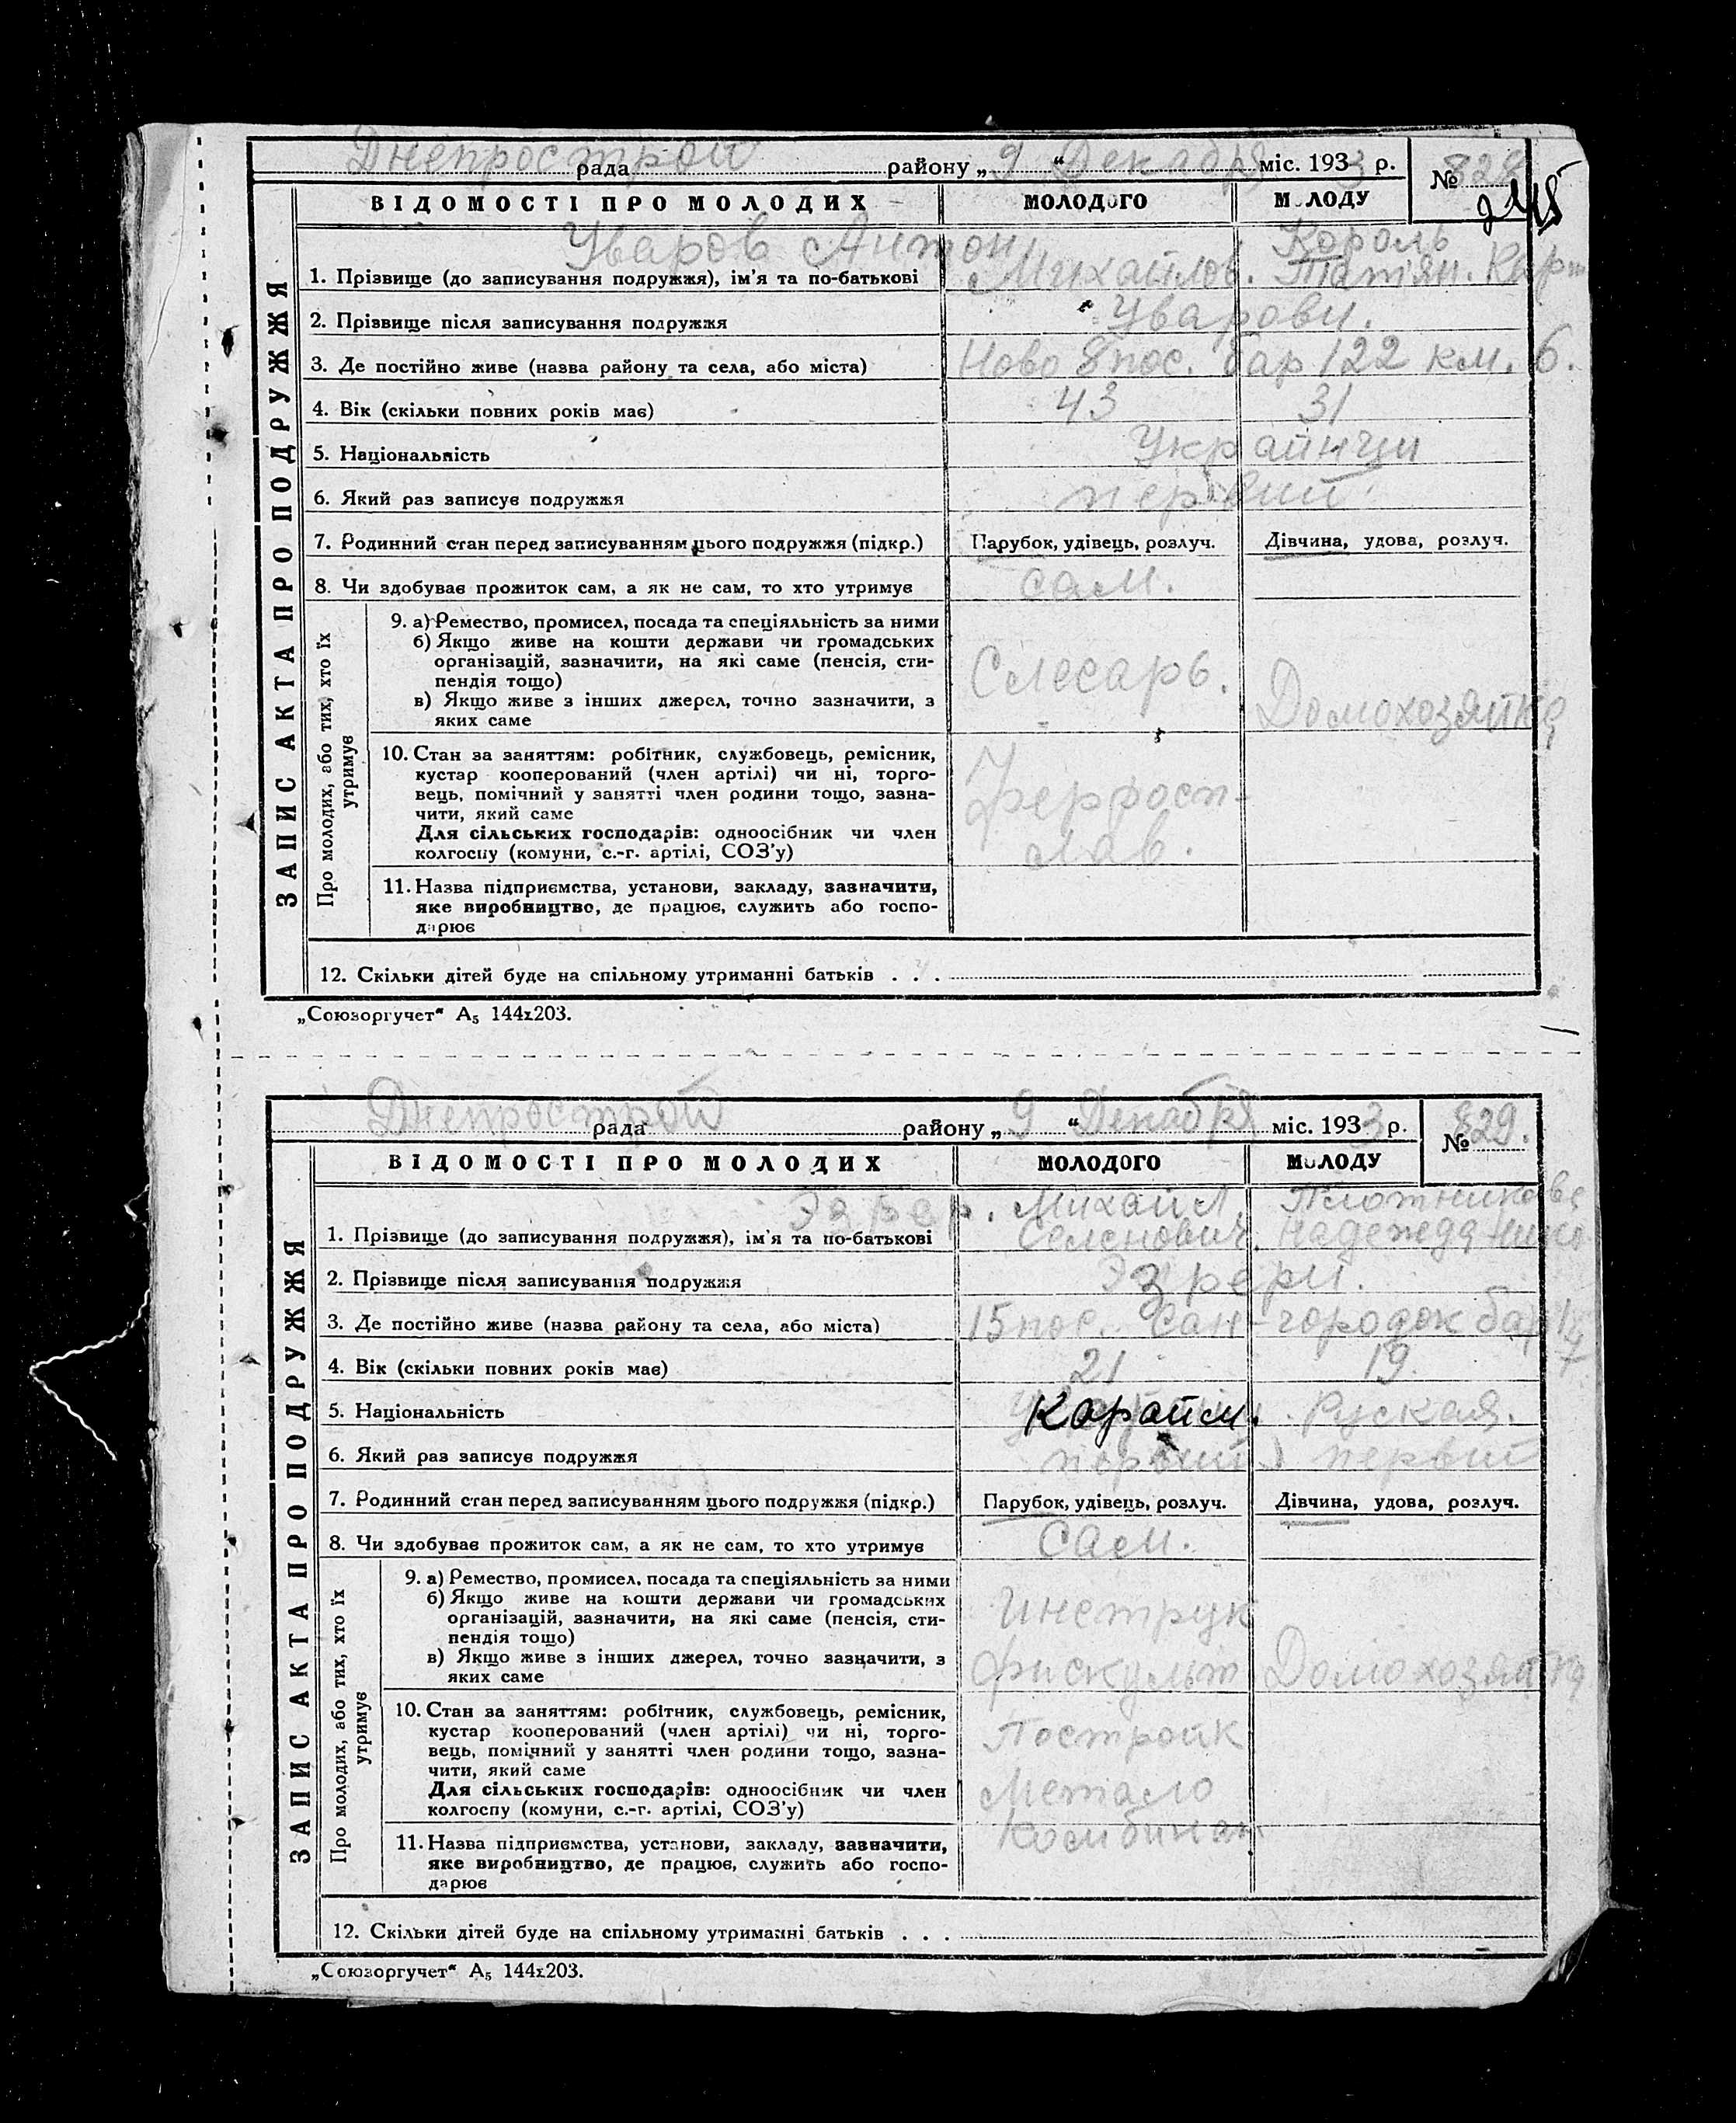 Днепрострой рада району „ 9 “ Декабря міс. 1933 р. № 828
245
ВІДОМОСТІ ПРО МОЛОДИХ МОЛОДОГО МОЛОДУ
ЗАПИС АКТА ПРО ПОДРУЖЖЯ
Уваров Антон Король
1. Прізвище (до записування подружжя), ім'я та по-батькові Михайлов. Татян. Карп
2. Прізвище після записування подружжя Уварови.
3. Де постійно живе (назва району та села, або міста) Ново 8 пос. бар 122 км. 6.
4. Вік (скільки повних років має) 43 31
5. Національність Українци
6. Який раз записує подружжя первий
7. Родинний стан перед записуванням цього подружжя (підкр.) Парубок, удівець, розлуч. Дівчина, удова, розлуч.
8. Чи здобуває прожиток сам, а як не сам, то хто утримує сам.
Про молодих, або тих, хто їх утримує
9. а) Ремество, промисел, посада та спеціяльність за ними
б) Якщо живе на кошти держави чи громадських
організацій, зазначити, на які саме (пенсія, сти-
пендія тощо) Слесарь.
в) Якщо живе з інших джерел, точно зазначити, з Домохозяйка
яких саме
10. Стан за заняттям: робітник, службовець, ремісник,
кустар кооперований (член артілі) чи ні, торго-
вець, помічний у занятті член родини тощо, зазна-
чити, який саме
Для сільських господарів: одноосібник чи член
колгоспу (комуни, с.-г. артілі, СОЗ'у)
11. Назва підприємства, установи, закладу, зазначити,
яке виробництво, де працює, служить або госпо-
дарює
12. Скільки дітей буде на спільному утриманні батьків . . .
„Союзоргучет“ А₅ 144х203.
Днепрострой рада району „ 9 “ Декабря міс. 1933 р. № 829.
ВІДОМОСТІ ПРО МОЛОДИХ МОЛОДОГО МОЛОДУ
ЗАПИС АКТА ПРО ПОДРУЖЖЯ
Эзрер. Михайл. Плотникова
1. Прізвище (до записування подружжя), ім'я та по-батькові Семенович. Надежда
2. Прізвище після записування подружжя Эзрери.
3. Де постійно живе (назва району та села, або міста) 15 пос. Сан-городок бар
4. Вік (скільки повних років має) 21 19.
5. Національність Карайм. Руская.
6. Який раз записує подружжя первий первий
7. Родинний стан перед записуванням цього подружжя (підкр.) Парубок, удівець, розлуч. Дівчина, удова, розлуч.
8. Чи здобуває прожиток сам, а як не сам, то хто утримує сам.
Про молодих, або тих, хто їх утримує
9. а) Ремество, промисел, посада та спеціяльність за ними
б) Якщо живе на кошти держави чи громадських Инструк
організацій, зазначити, на які саме (пенсія, сти-
пендія тощо)
в) Якщо живе з інших джерел, точно зазначити, з Фискульт Домохозяйка
яких саме
10. Стан за заняттям: робітник, службовець, ремісник,
кустар кооперований (член артілі) чи ні, торго- Постройк
вець, помічний у занятті член родини тощо, зазна-
чити, який саме
Для сільських господарів: одноосібник чи член Метало
колгоспу (комуни, с.-г. артілі, СОЗ'у)
Комбинат
11. Назва підприємства, установи, закладу, зазначити,
яке виробництво, де працює, служить або госпо-
дарює
12. Скільки дітей буде на спільному утриманні батьків . . .
„Союзоргучет“ А₅ 144х203.